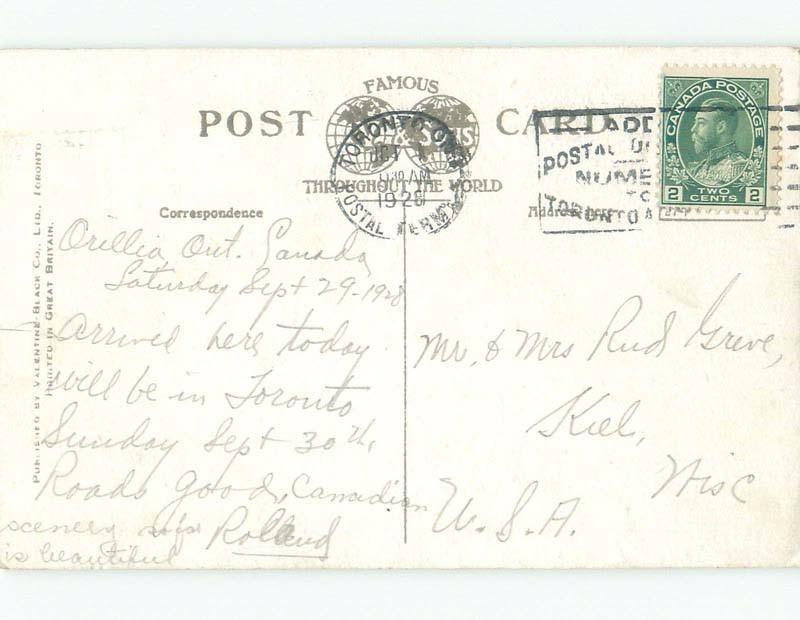 FAMOUS
POST CARD
THROUGHOUT THE WORLD
TORONTO, ONT.
OCT
AM
1928
POSTAL TERM
POSTAL
TORONTO
CANADA POSTAGE
2 TWO CENTS 2
Correspondence
Address
PUBLISHED BY VALENTINE-BLACK CO., LTD., TORONTO
PRINTED IN GREAT BRITAIN.
Orillia, Ont. Canada
Saturday Sept 29-1928
Arrived here today
will be in Toronto
Sunday Sept 30th,
Roads good, Canadian
scenery
is beautiful
Rolland
Mr. & Mrs Rud Greve,
Kiel,
Wisc
U.S.A.